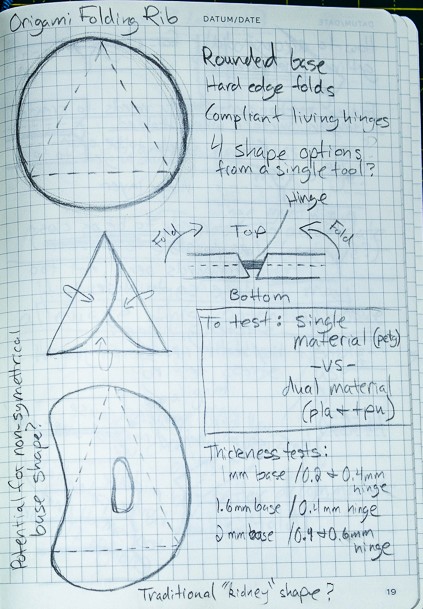 Origami Folding Rib
DATUM/DATE
Rounded base
Hard edge folds
Compliant living hinges
4 shape options
from a single tool?
Hinge
Fold
Top
Fold
Bottom
To test: single
material (petg)
-VS-
dual material
(pla + tpu)
Potential for non-symettrical
base shape?
Thickness tests:
1mm base / 0.2 + 0.4mm
hinge
1.6mm base / 0.4mm hinge
2mm base / 0.4 + 0.6mm
hinge
Traditional "kidney" shape?
19